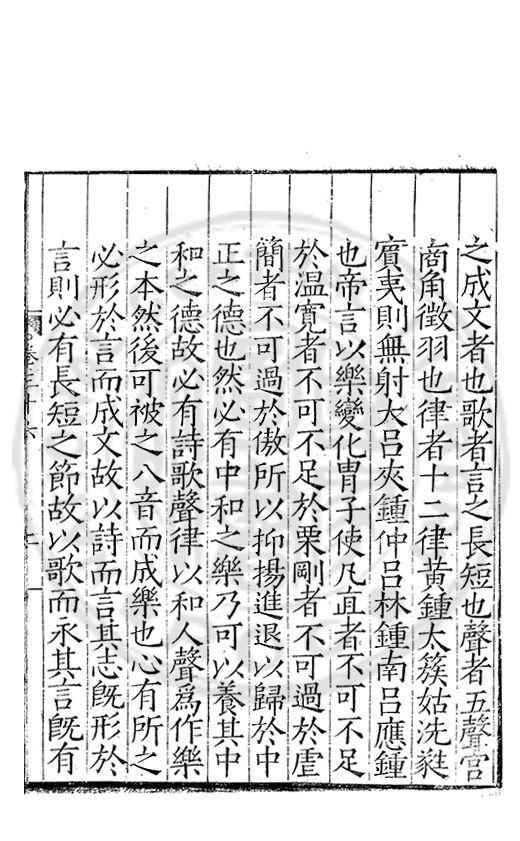 之成文者也歌者言之長短也聲者五聲宮
商角徵羽也律者十二律黃鍾太簇姑洗蕤
賓夷則無射大呂夾鍾仲呂林鍾南呂應鍾
也帝言以樂變化胄子使凡直者不可不足
於溫寬者不可不足於栗剛者不可過於虐
簡者不可過於傲所以抑揚進退以歸於中
正之德也然必有中和之樂乃可以養其中
和之德故必有詩歌聲律以和人聲爲作樂
之本然後可被之八音而成樂也心有所之
必形於言而成文故以詩而言其志旣形於
言則必有長短之節故以歌而永其言旣有